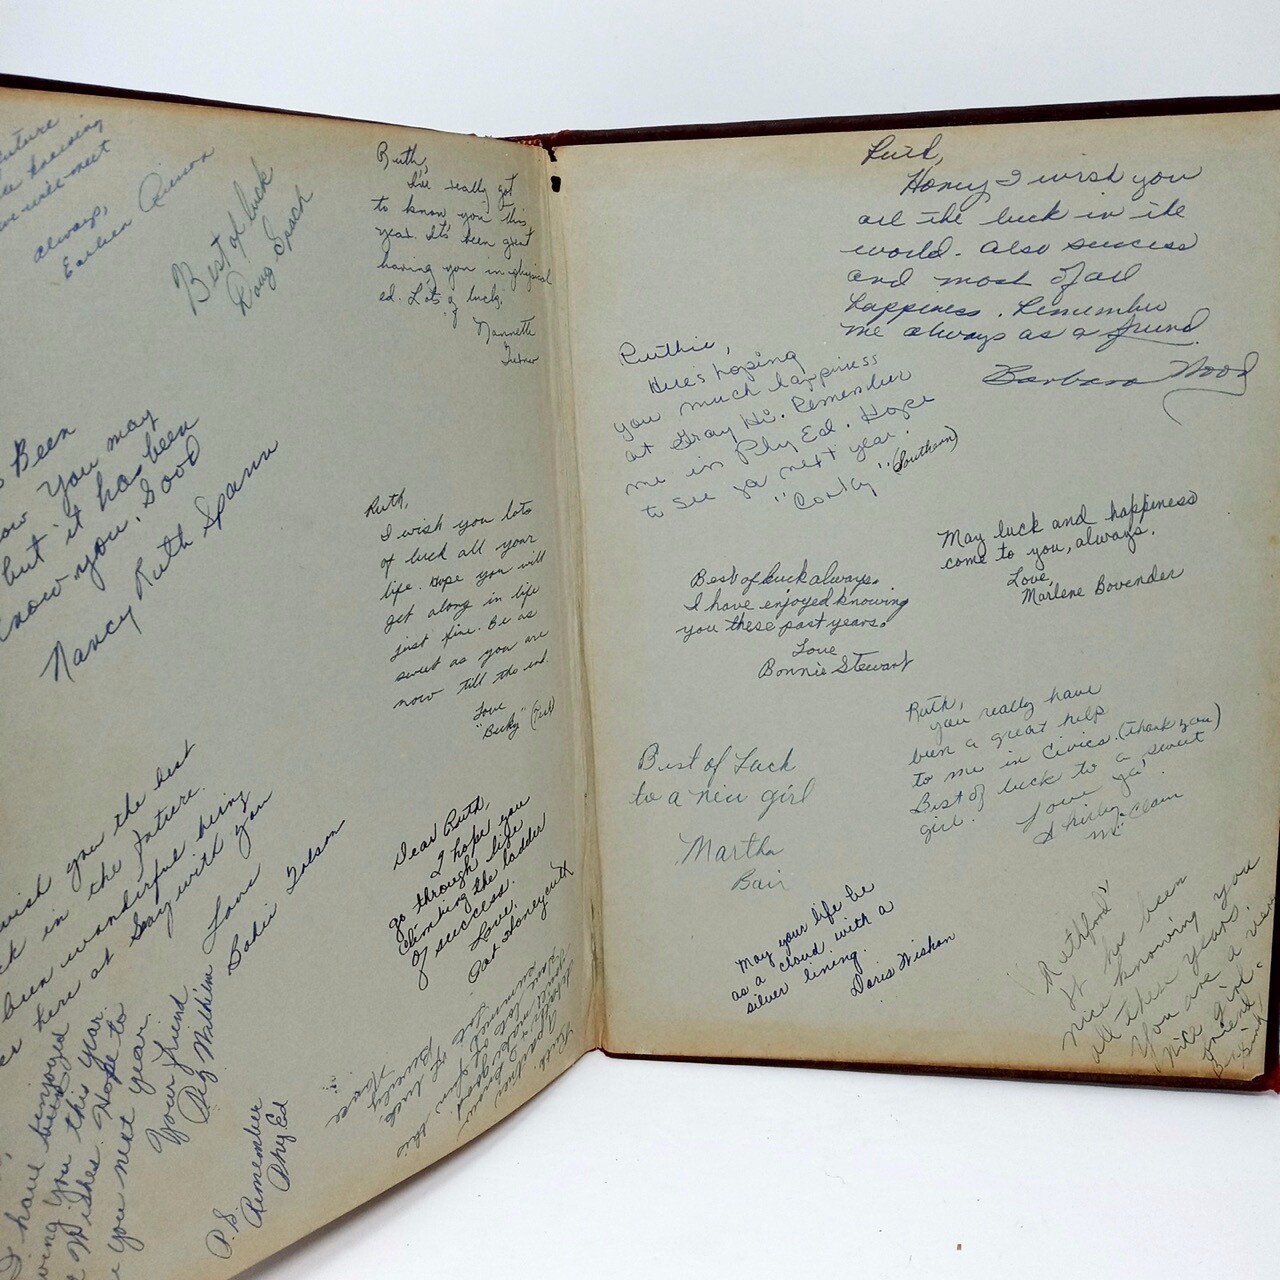 future
knowing
we meet
always,
Best of luck
Doug
Ruth,
I've really got
to know you this
year. It's been great
having you in physical
ed. Lots of luck.
Nannette
Been
now you may
but it has been
know you. Good
Nancy Ruth Spann
Ruth,
I wish you lots
of luck all your
life. Hope you will
get along in life
just fine. Be as
sweet as you are
now till the end.
Love
"Becky"
wish you the best
in the future.
been wonderful being
here at Gray with you
Love
Dear Ruth,
I hope you
go through life
climbing the ladder
of success.
Love,
Pat Honeycutt
I have enjoyed
you this year.
Wishes. Hope to
you next year.
Your friend
Peg Wilhelm
P.S. Remember
Phy Ed
Ruth
Beverly
Honey I wish you
all the luck in the
world. Also success
and most of all
happiness. Remember
me always as a friend.
Barbara Wood
Ruthie,
Here's hoping
you much happiness
at Gray Hi. Remember
me in Phy Ed. Hope
to see ya next year.
"Corky" (Southern)
May luck and happiness
come to you, always.
Love,
Marlene Bovender
Best of luck always.
I have enjoyed knowing
you these past years.
Love
Bonnie Stewart
Ruth,
you really have
been a great help
to me in Civics. (thank you)
Best of luck to a sweet
girl.
Love ya!
Shirley
McClain
Best of Luck
to a nice girl
Martha
Bair
May your life be
as a cloud with a
silver lining.
Doris
It has been
nice knowing you
all these years.
You are a
nice girl.